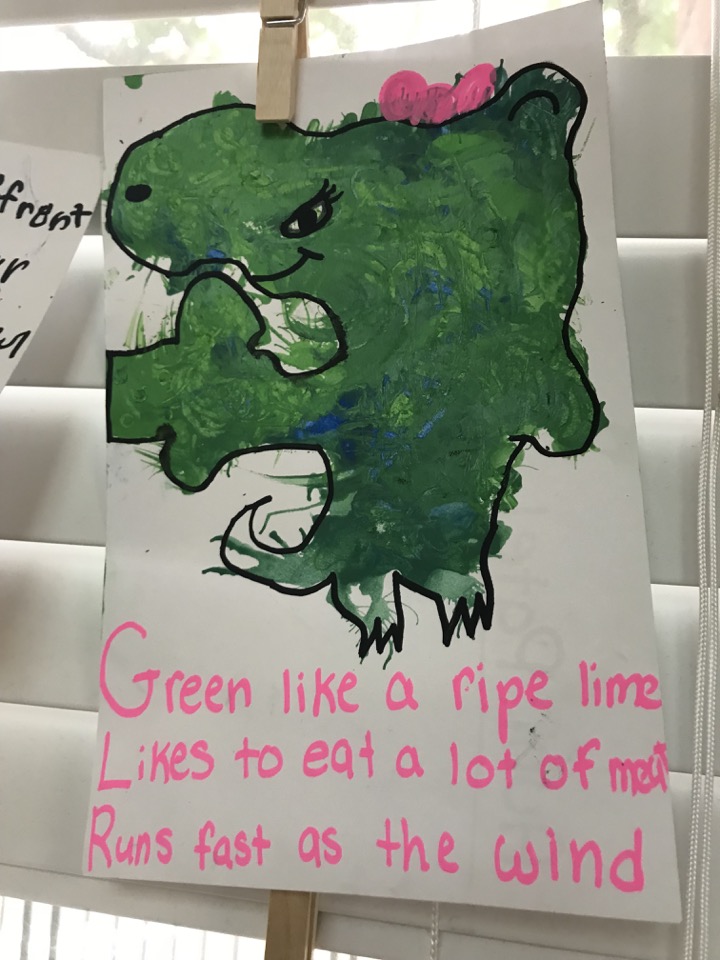 Green like a ripe lime
Likes to eat a lot of meat
Runs fast as the wind